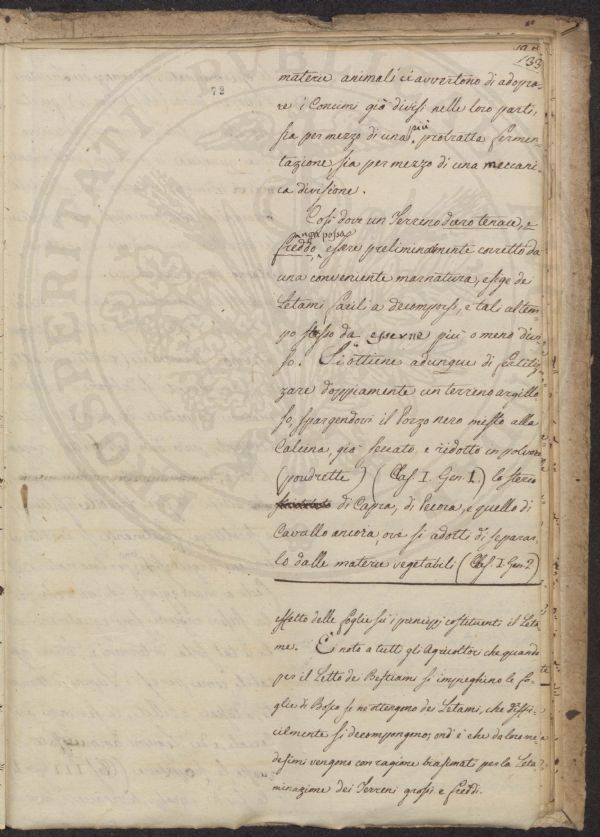 133
73
materie animali ci avvertono di adopra-
re i Concimi già divisi nelle loro parti,
sia per mezzo di una più protratta fermen-
tazione sia per mezzo di una meccani-
ca divisione.
Così dove un Terreno duro tenace, e
freddo, non possa essere preliminalmente corretto da
una conveniente marnatura, esige de
Letami facili a decomporsi, e tali al tem-
po stesso da esserne più o meno divi-
so. Si ottiene adunque di fertiliz-
zare doppiamente un terreno argillo-
so, spargendovi il Pozzo nero misto alla
Calcina, già seccato, e ridotto in polvere
(poudrette) (Class. I. Gen. 1.) lo sterco
di Capra, di Pecora, e quello di
Cavallo ancora, ove si adotti di separar-
lo dalle materie vegetabili (Class. I. Gen. 2.)
effetto delle foglie su i principj costituenti il Leta-
me. È noto a tutti gli Agricoltori che quando
per il Letto dei Bestiami si impieghino le fo-
glie di Bosco se ne ottengono dei Letami, che diffi-
cilmente si decompongono; ond'è che da loro me-
desimi vengono con ragione biasimati per la Leta-
minazione dei Terreni grossi e freddi.